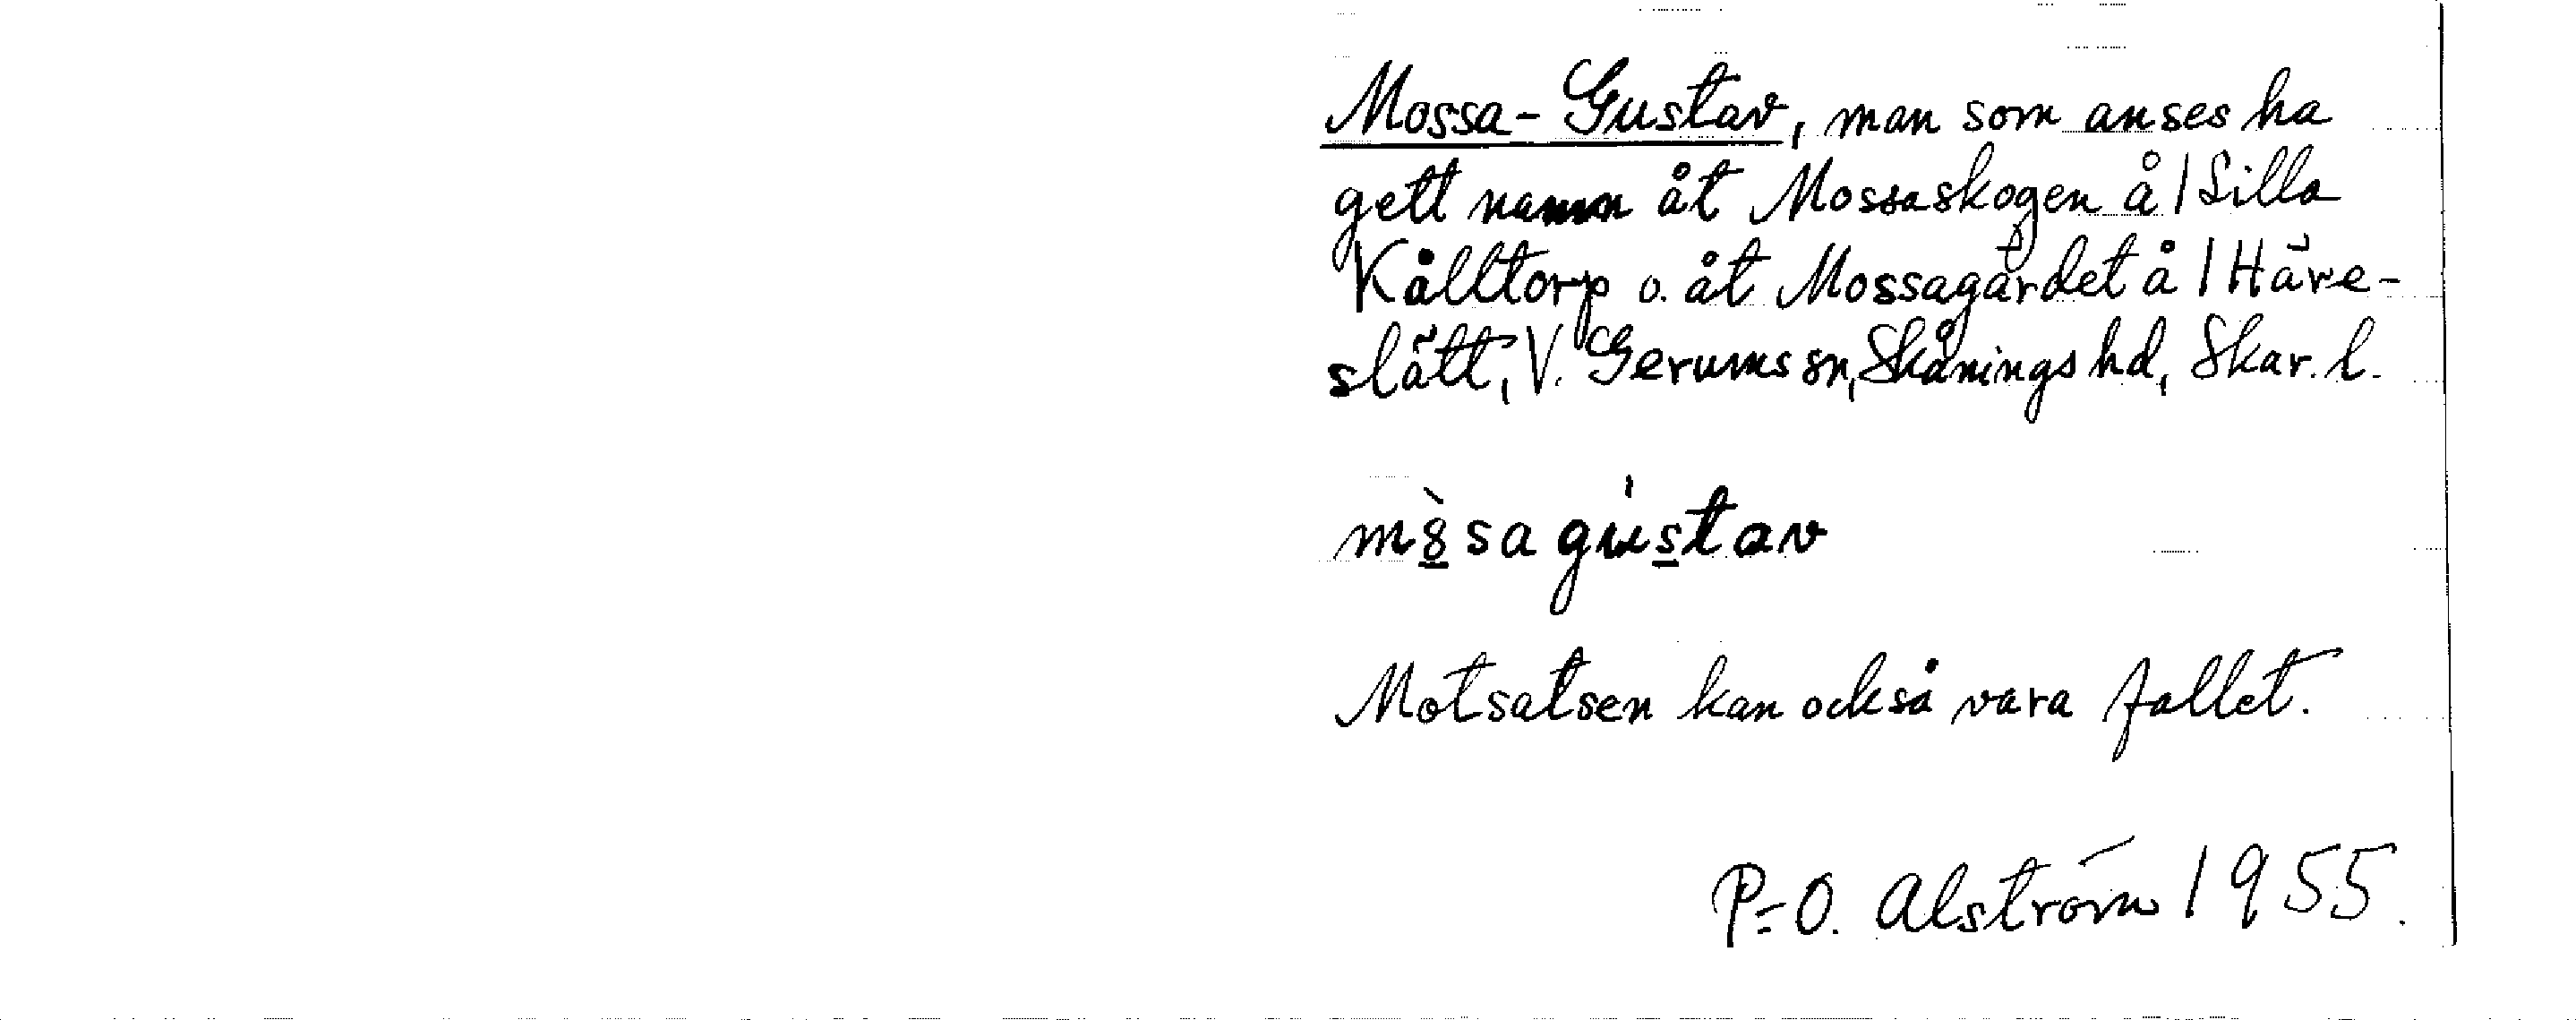 Mossa-Gustav, man som anses ha
gett namn åt Mossaskogen å 1 Lilla
Kålltorp o. åt Mossagärdet å 1 Häve-
slätt, V. Gerums sn, Skånings hd, Skar. l.
mòsa gústav
Motsatsen kan också vara fallet.
P-O. Alström 1955.